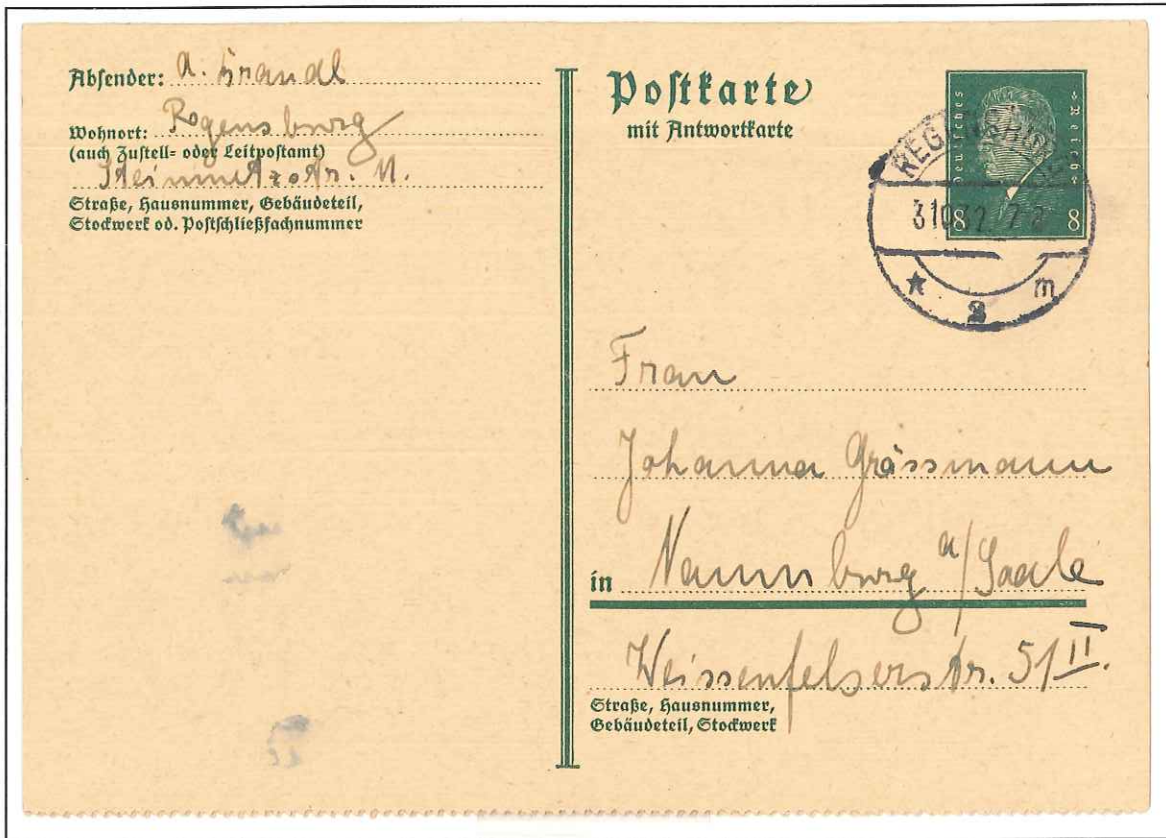 Absender: A. Brandl
Wohnort: Regensburg
(auch Zustell= oder Leitpostamt)
Steinmetzstr. 11.
Straße, Hausnummer, Gebäudeteil,
Stockwerk od. Postschließfachnummer
Postkarte
mit Antwortkarte
Deutsches Reich
8 8
REGENSBURG
3.10.32. 7-8
* 2 m
Frau
Johanna Grässmann
in Naumburg a/Saale
Weissenfelserstr. 51 II.
Straße, Hausnummer,
Gebäudeteil, Stockwerk